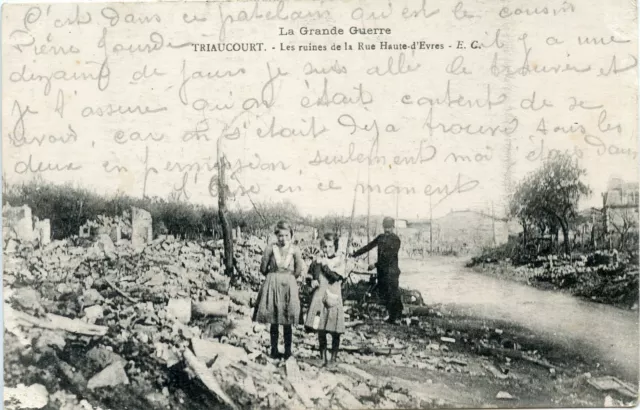 C'est dans ce patelain qu'est le cousin
Pierre
La Grande Guerre
TRIAUCOURT. - Les ruines de la Rue Haute-d'Evres - E. C.
il y a une
dizaine de jours je suis allé le trouver et
je t'assure qu'on était content de se
revoir, car on s'était déja trouvé tous les
deux en permission, seulement moi dans
l' en ce moment